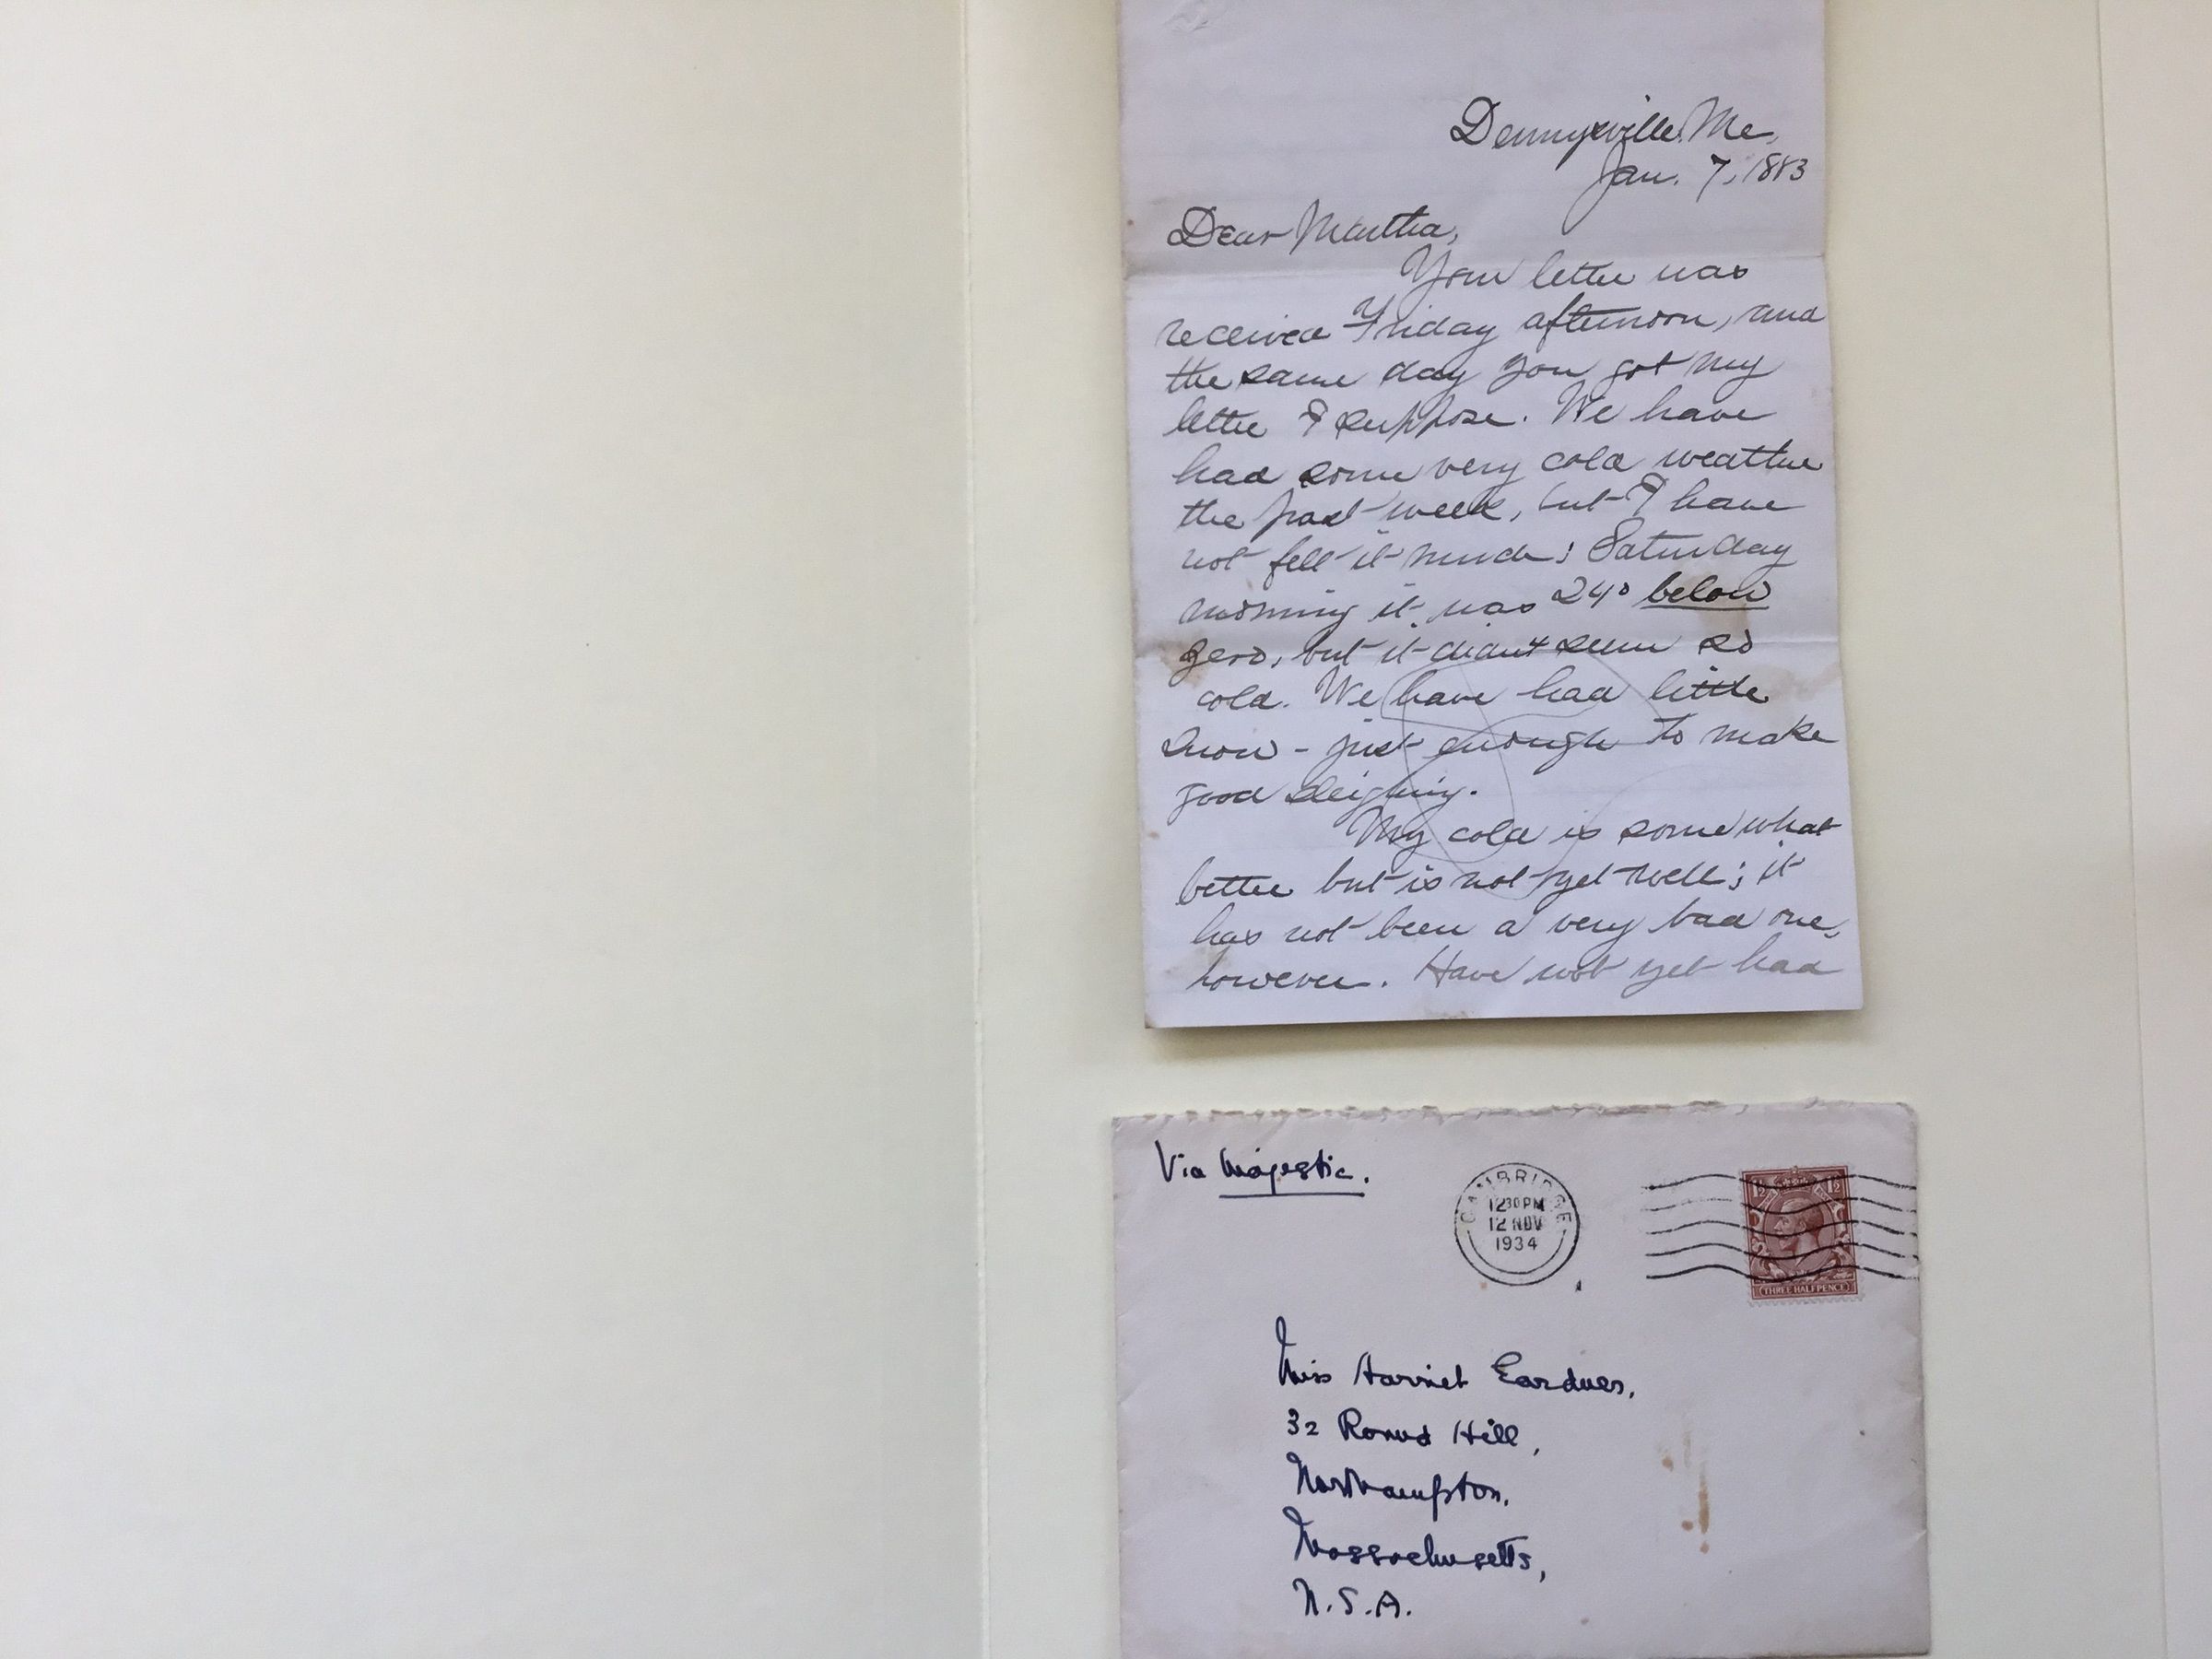 Dennysville Me,
Jan. 7, 1883
Dear Martha,
Your letter was
received Friday afternoon, and
the same day you got my
letter I suppose. We have
had some very cold weather
the past week, but I have
not felt it much; Saturday
morning it was 24° below
zero, but it didn't seem so
cold. We have had little
snow - just enough to make
good sleighing.
My cold is somewhat
better but is not yet well; it
has not been a very bad one,
however. Have not yet had
Via Majestic.
CAMBRIDGE
12 30 PM
12 NOV
1934
1½ 1½
THREE HALFPENCE
Miss Harriet Gardner,
32 Round Hill,
Northampton,
Massachusetts,
U.S.A.